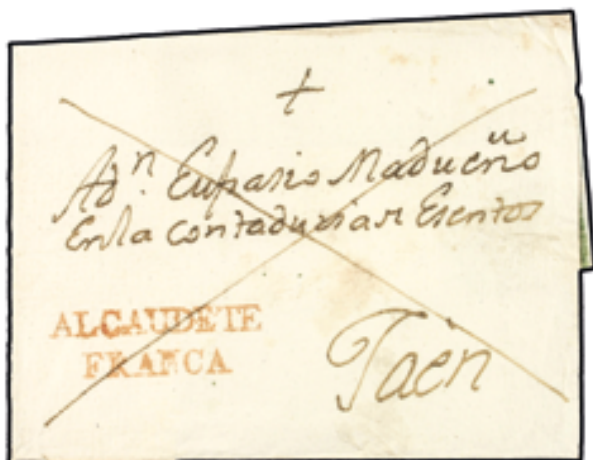 +
A Dⁿ. Eufrasio Madueño
En la Contaduria
ALCAUDETE
FRANCA
Jaen